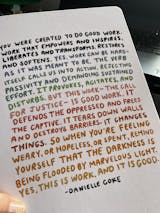 YOU WERE CREATED TO DO GOOD WORK.
WORK THAT EMPOWERS AND INSPIRES,
LIBERATES AND TRANSFORMS, RESTORES
AND SOFTENS. YES, WORK CAN BE HARD—
AS IT WAS MEANT TO BE. THE VERB
ITSELF CALLS US INTO ACTION, REJECTING
PASSIVITY AND DEMANDING SUSTAINED
EFFORT. IT PROVOKES, AGITATES, AND
DISTURBS. BUT THIS WORK—THE CALL
FOR JUSTICE— IS GOOD WORK. IT
DEFENDS THE OPPRESSED AND FREES
THE CAPTIVE. IT TEARS DOWN WALLS
AND DESTROYS BARRIERS. IT CHANGES
THINGS. SO WHEN YOU'RE FEELING
WEARY, OR HOPELESS, OR SPENT, REMIND
YOURSELF THAT THE DARKNESS IS
BEING FLOODED BY MARVELOUS LIGHT.
YES, THIS IS WORK. AND IT IS GOOD.
-DANIELLE COKE